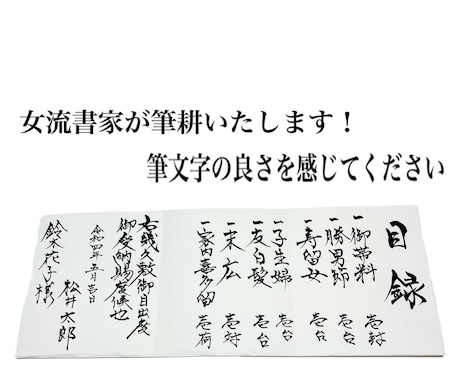 女流書家が筆耕いたします！
筆文字の良さを感じてください
目録
一御帯料 壱封
一勝男節 壱台
一寿留女 壱台
一子生婦 壱台
一友白髪 壱台
一末広 壱対
一家内喜多留 壱荷
右幾久敷御目出度
御受納賜度候也
令和四年五月吉日
松井太郎
鈴木花子様